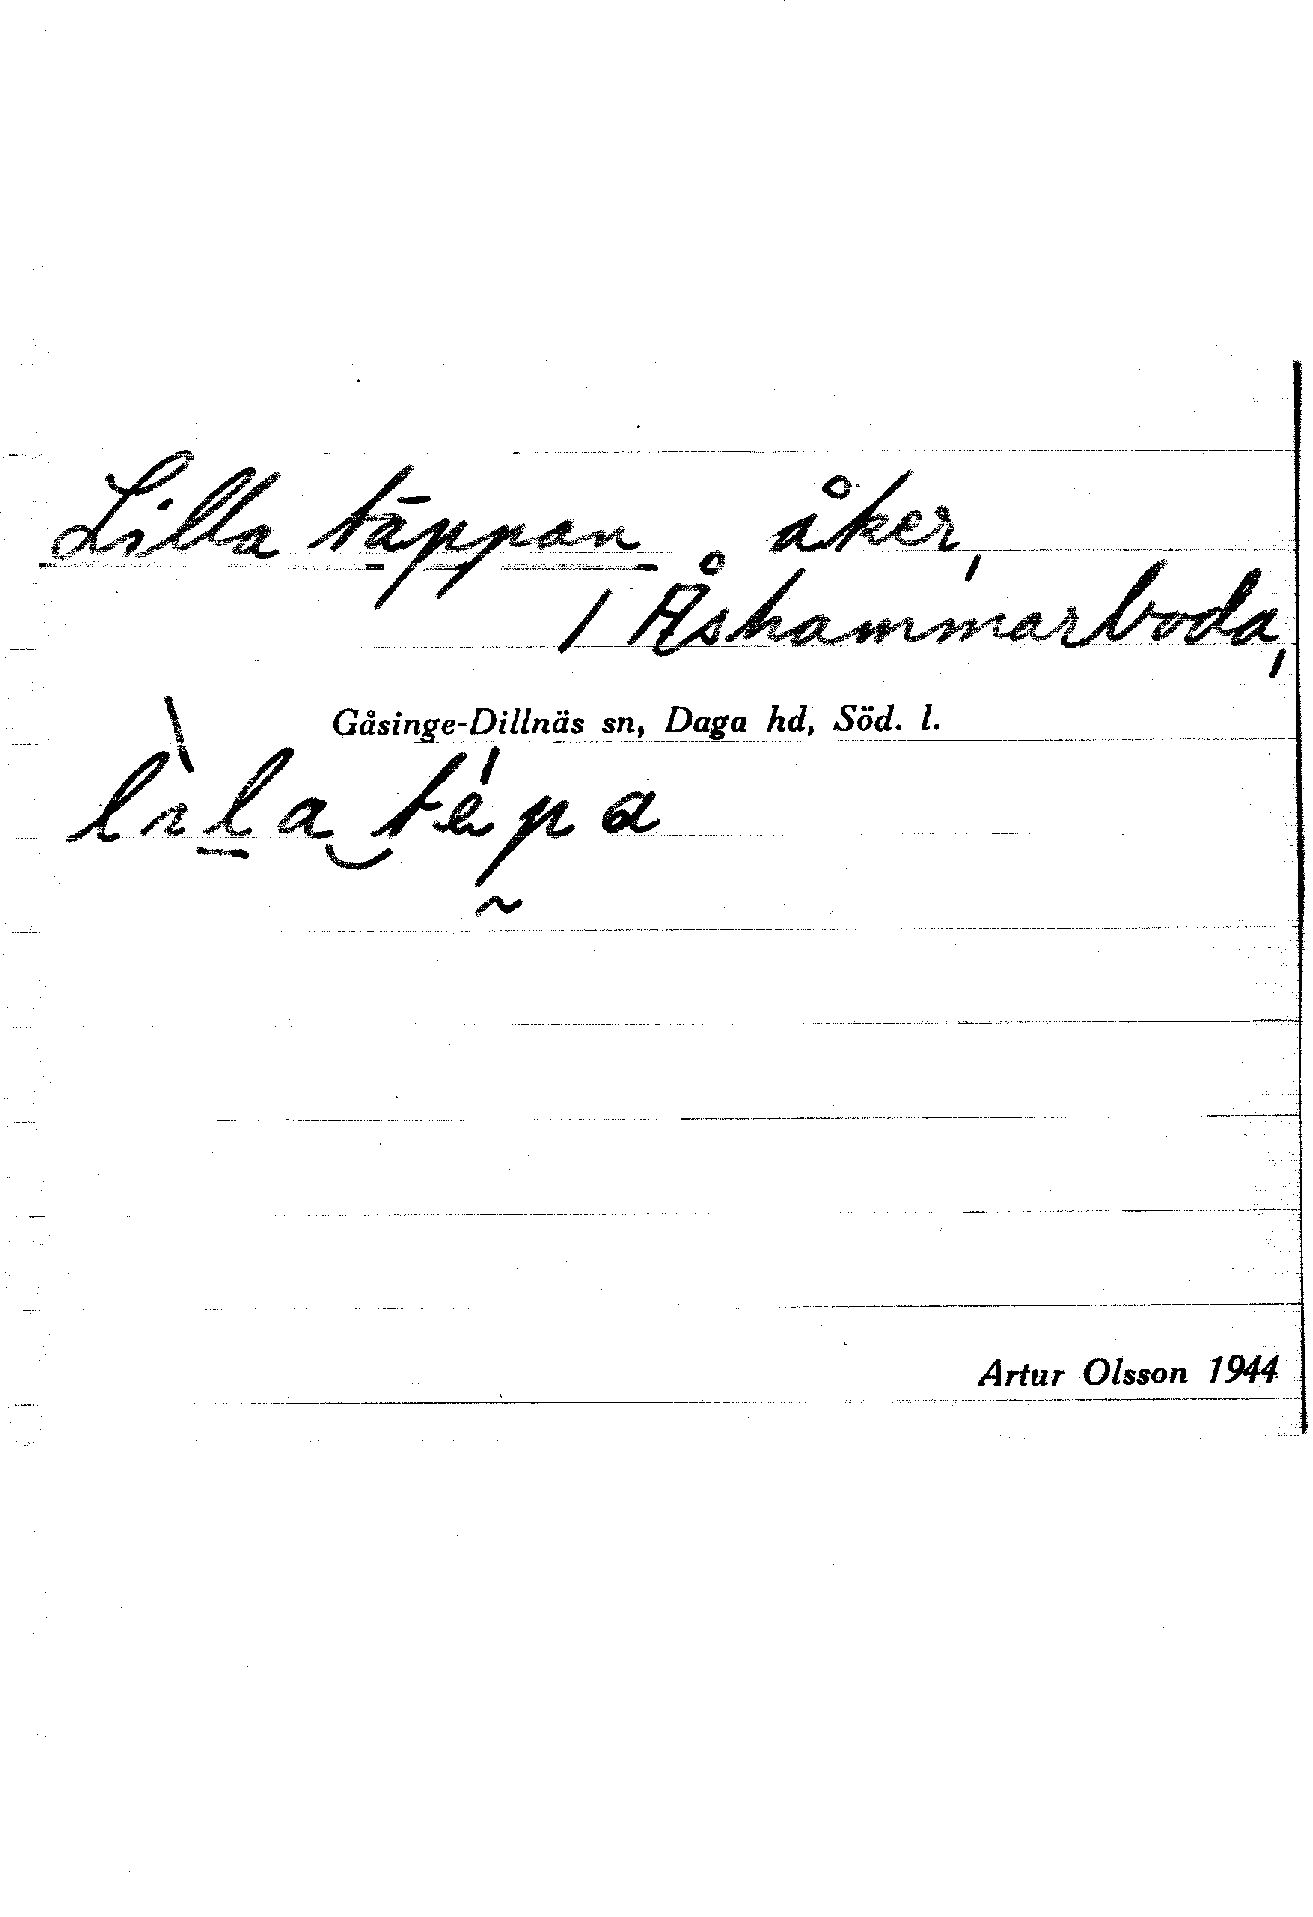 Lilla täppan åker,
/ Åshammarboda,
Gåsinge-Dillnäs sn, Daga hd, Söd. l.
lìla tépa
Artur Olsson 1944